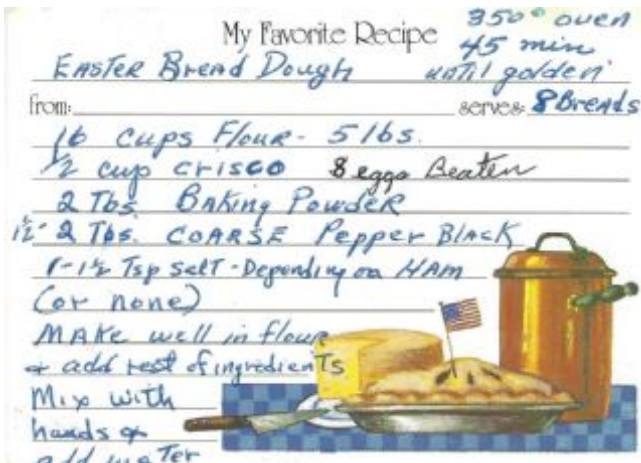 My Favorite Recipe
350° oven
45 min
until golden
Easter Bread Dough
from:
serves: 8 Breads
16 cups Flour - 5 lbs.
1/2 cup crisco 8 eggs Beaten
2 Tbs. Baking Powder
1 1/2 - 2 Tbs. COARSE Pepper Black
1-1 1/2 Tsp salt - Depending on HAM
(or none)
MAKe well in flour
& add rest of ingredienTs
Mix with
hands &
add waTer